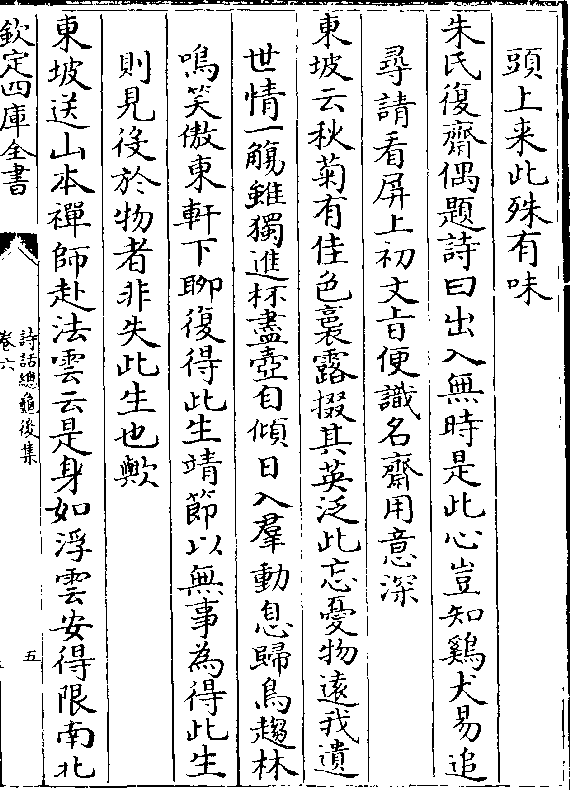 頭上来此殊有味
朱氏復齋偶題詩曰出入無時是此心豈知鷄犬易追
尋請看屏上初文旨便識名齋用意深
東坡云秋菊有佳色裛露掇其英泛此忘憂物遠我遺
世情一觴雖獨進杯盡壺自傾日入羣動息歸鳥趨林
鳴笑傲東軒下聊復得此生靖節以無事為得此生
則見役於物者非失此生也歟
東坡送山本禪師赴法雲云是身如浮雲安得限南北
欽定四庫全書
詩話總龜後集
卷六
五